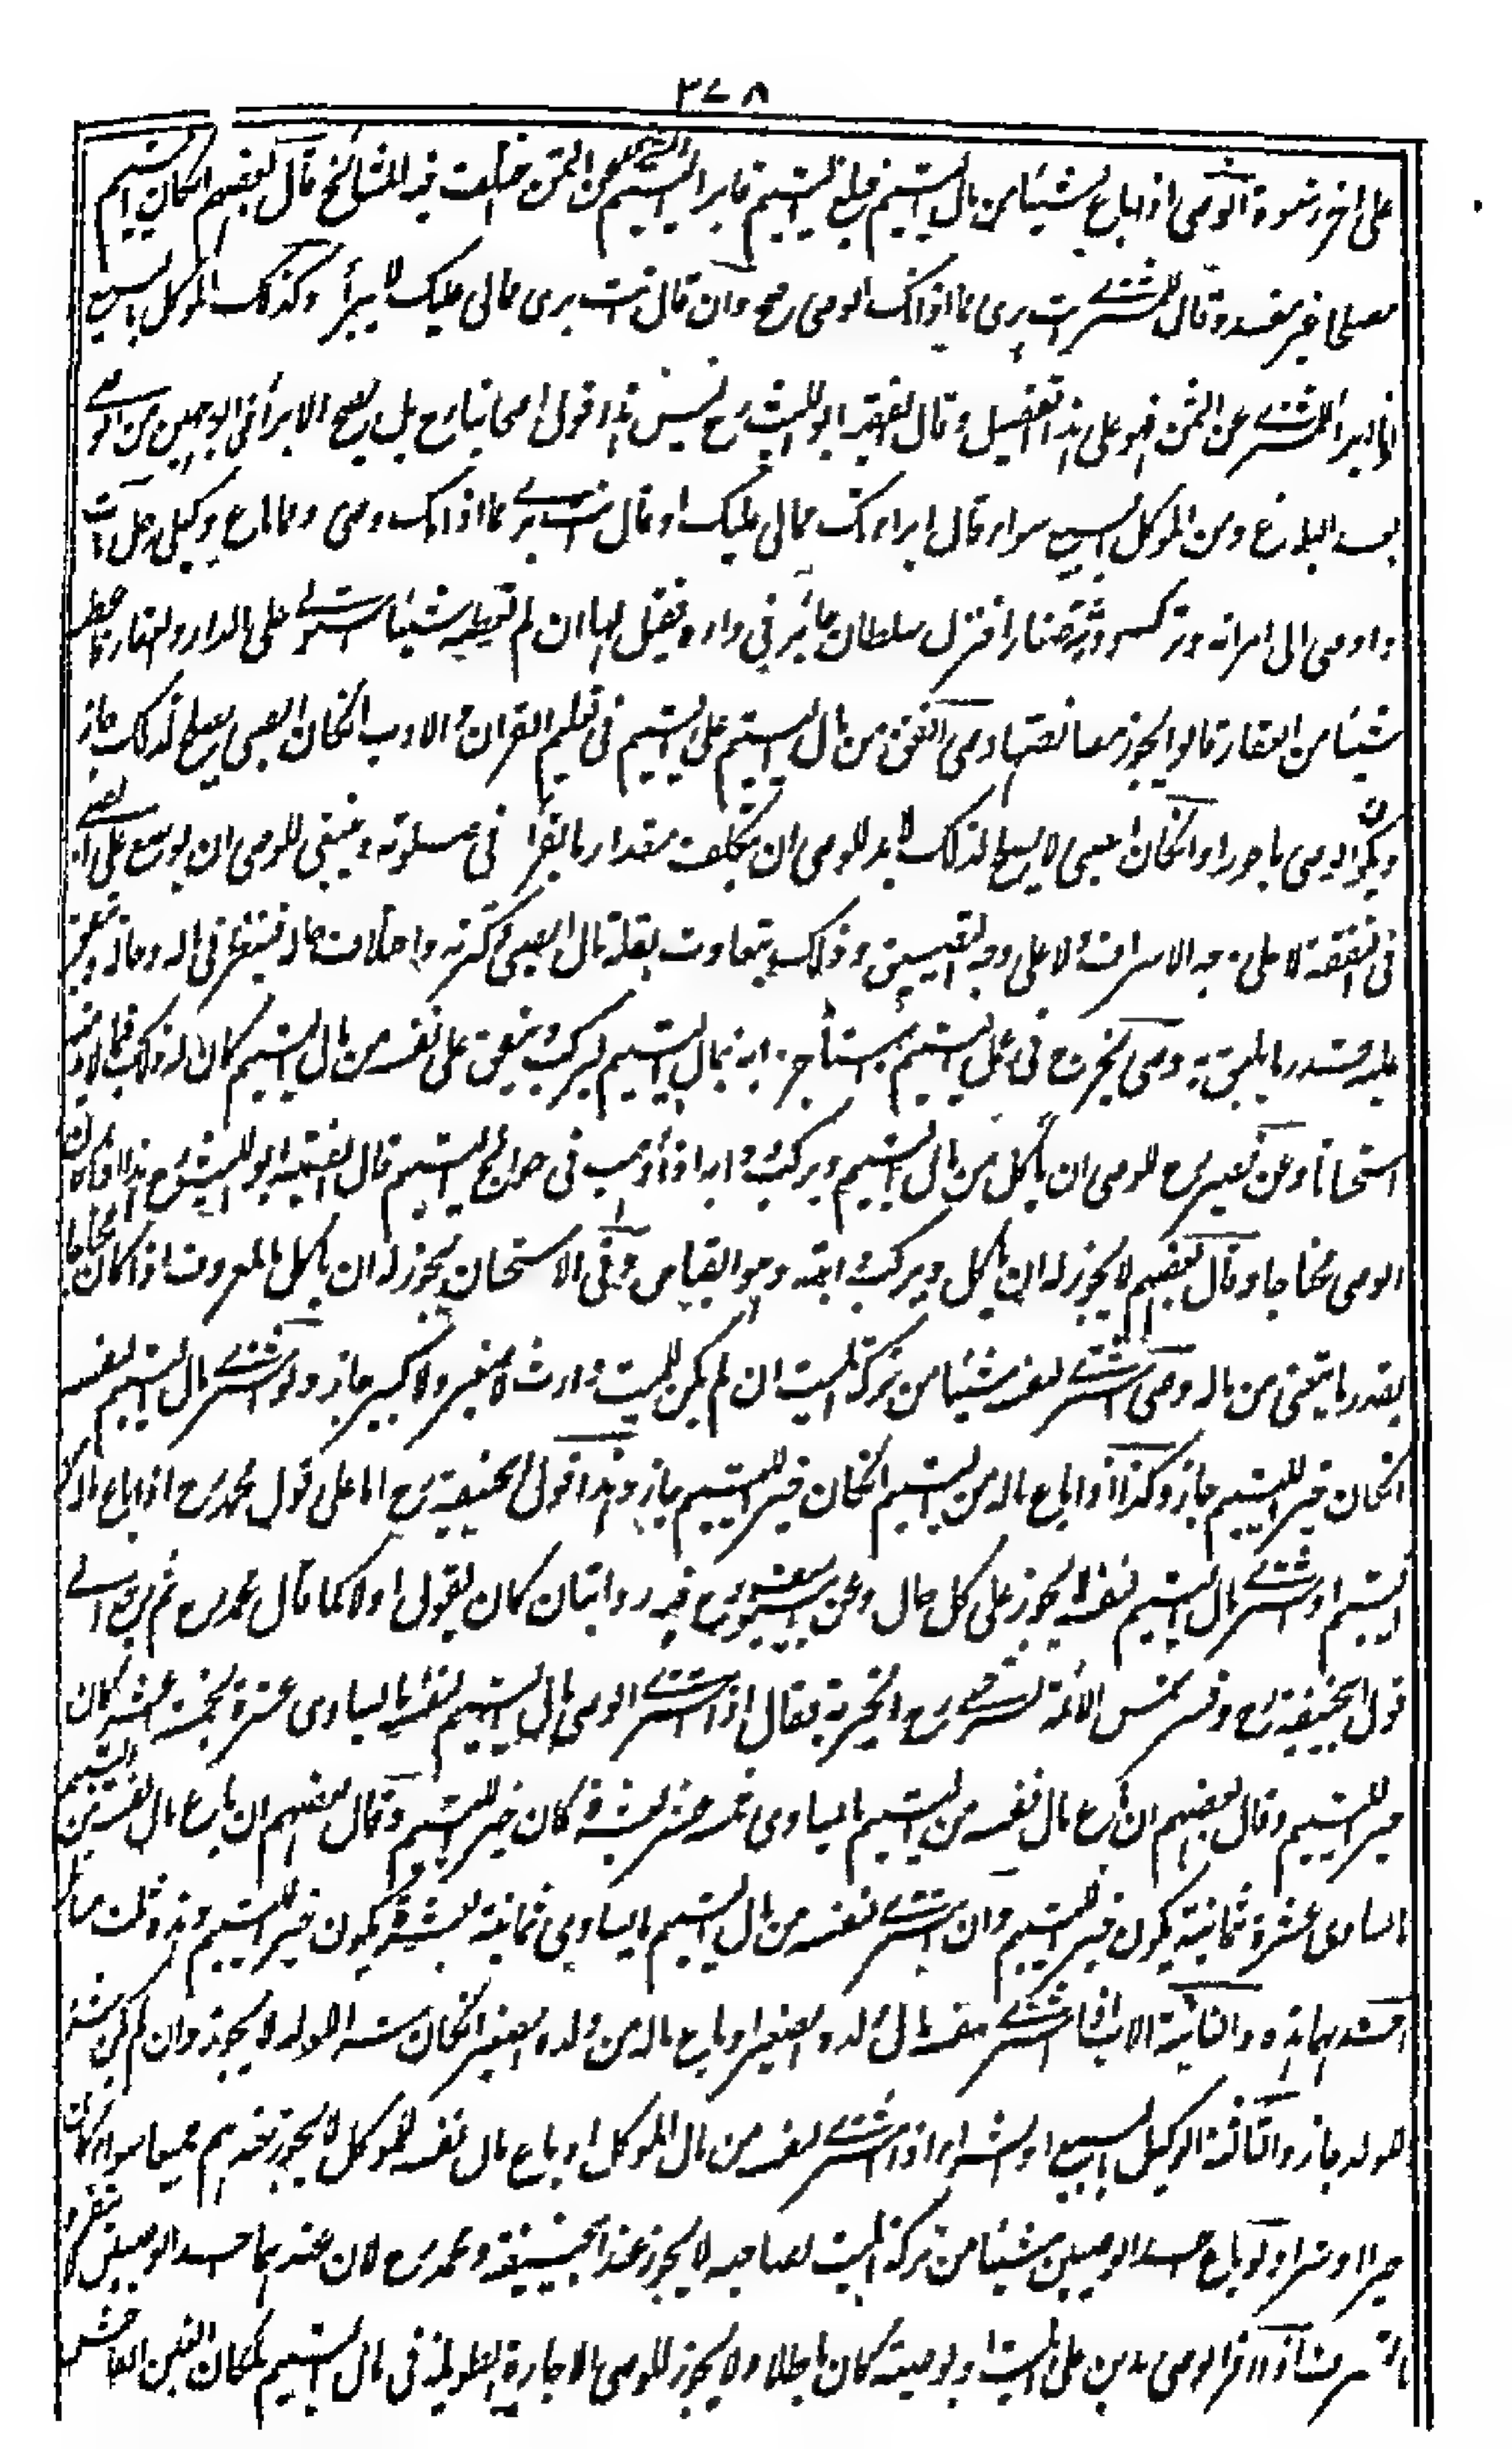 ٣٧٨
على اخر وتموه الوصى اذا باع شيئا من مال اليتيم فبلغ اليتيم فابرا المشترى عن الثمن اختلف فيه المشائخ قال بعضهم انكان اليتيم
مصلحا غير مفسد وقال للمشترى انت برى مما اذانك الوصى صح وان قال انت برى مما لى عليك لا يبرأ وكذلك الموكل بالبيع
اذا ابرا المشترى عن الثمن فهو على هذا التفصيل وقال الفقيه ابو الليث رح ليس هذا قول اصحابنا رح بل يصح الابرأ فى الوجهين من الوصى
بعد البلوغ ومن الموكل بالبيع سواء قال ابراتك مما لى عليك او قال انت برى مما اذانك وصى ومما باع وكيلى رجل مات
واوصى الى امرأته وترك ورثة صغارا فنزل سلطان جائر فى داره فقيل لها ان لم تعطيه شيئا استولى على الدار والعقار فاعطت
شيئا من العقار قالوا يجوز مصانعتها وصى انفق من مال اليتيم على اليتيم فى تعليم القران والادب انكان الصبى يصلح لذلك جاز
ويكون الوصى ماجورا وانكان الصبى لا يصلح لذلك لا بد للوصى ان يتكلف مقدار ما يقرأ فى صلوته وينبغى للوصى ان يوسع على الصبى
فى النفقة لا على وجه الاسراف ولا على وجه التضييق وذلك يتفاوت بقلة مال الصبى وكثرته واختلاف حاله فينظر فى ماله وحاله وينفق
عليه قدر ما يليق به وصى يخرج فى عمل اليتيم واستأجر دابة بمال اليتيم ليركب وينفق على نفسه من مال اليتيم كان له ذلك فيما لا بد منه
استحسانا وعن نصير رح للوصى ان ياكل من مال اليتيم ويركب دوابه اذا ذهب فى حوائج اليتيم قال الفقيه ابو الليث رح هذا اذا كان
الوصى محتاجا وقال بعضهم لا يجوز له ان ياكل ويركب دابته وهو القياس وفى الاستحسان يجوز له ان ياكل بالمعروف اذا كان محتاجا
بقدر ما يتغنى من ماله وصى اشترى لنفسه شيئا من تركة الميت ان لم يكن للميت وارث لا صغير ولا كبير جاز ولو اشترى مال اليتيم لنفسه
انكان خير لليتيم جاز وكذا اذا باع ماله من اليتيم انكان خير لليتيم جاز وهذا قول ابيحنيفة رح اما على قول محمد رح اذا باع ماله من
اليتيم او اشترى مال اليتيم لنفسه لا يجوز على كل حال وعن ابى يوسف رح فيه روايتان كان يقول اولا كما قال محمد رح ثم رجع الى
قول ابيحنيفة رح وفسر شمس الائمة السرخسى رح الخيرية فقال اذا اشترى الوصى مال اليتيم لنفسه ما يساوى عشرة بخمسة عشر كان
خير لليتيم وقال بعضهم ان باع مال نفسه من اليتيم ما يساوى خمسة عشر بعشرة كان خير لليتيم وقال بعضهم ان باع مال نفسه من اليتيم
ما يساوى عشرة بثمانية يكون خير لليتيم وان اشترى لنفسه من مال اليتيم ما يساوى ثمانية بعشرة يكون خير لليتيم وهذه ثلث مسائل
احدها هذه والثانية الاب اذا اشترى لنفسه مال ولده الصغير او باع ماله من ولده الصغير انكان شرا للولد لا يجوز وان لم يكن شرا
للولد جاز والثالثة الوكيل بالبيع او الشراء اذا اشترى لنفسه من مال الموكل او باع مال نفسه للموكل لا يجوز عندهم جميعا سواء كان
خيرا او شرا ولو باع احد الوصيين شيئا من تركة الميت لصاحبه لا يجوز عند ابيحنيفة ومحمد رح لان عندهما احد الوصيين لا ينفرد
بالتصرف اذا اقر الوصى بدين على الميت او بوصية كان باطلا ولا يجوز للوصى الاجارة الطويلة فى مال اليتيم لمكان الغبن الفاحش